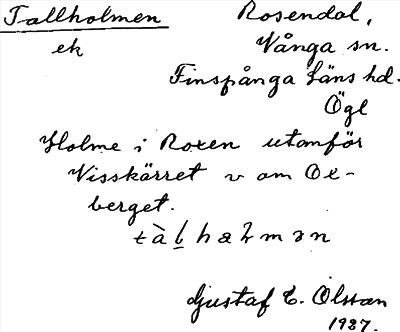 Tallholmen Rosendal,
ek Vånga sn.
Finspånga läns hd.
Ögl
Holme i Roxen utanför
Visskärret v om Ox-
berget.
Gustaf E. Olsson
1937.